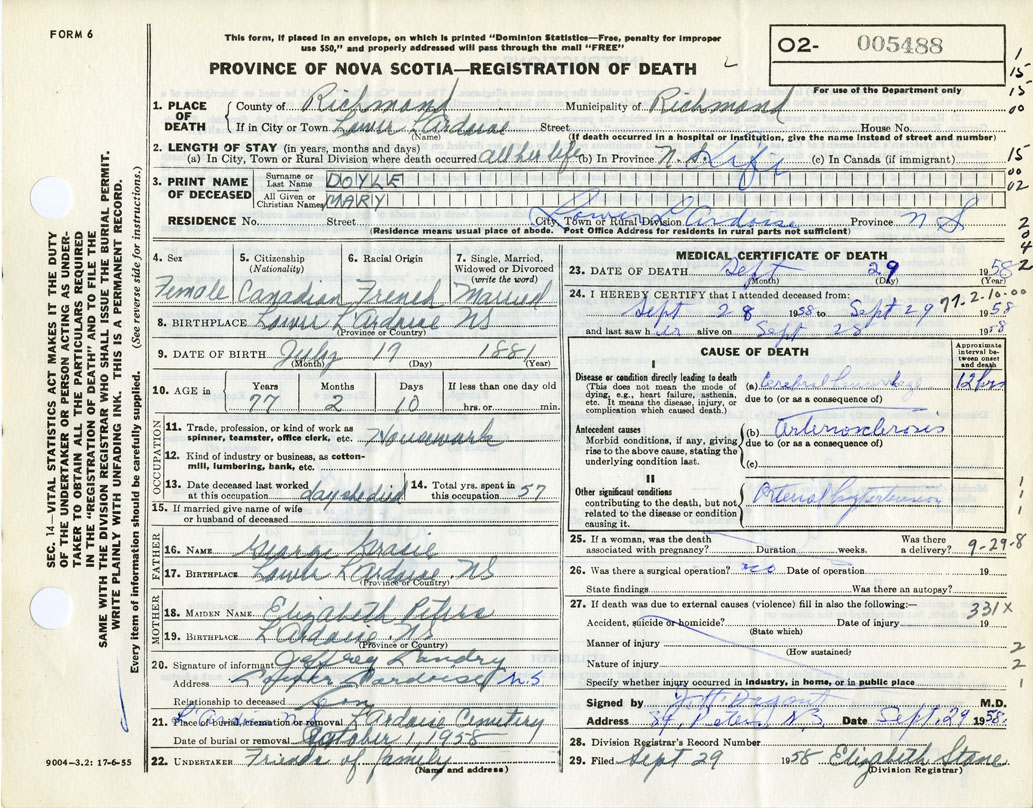 FORM 6
This form, if placed in an envelope, on which is printed "Dominion Statistics—Free, penalty for improper
use $50," and properly addressed will pass through the mail "FREE"
PROVINCE OF NOVA SCOTIA—REGISTRATION OF DEATH
O2- 005488
For use of the Department only
1
15
15
00
15
00
02
2
0
4
2
1. PLACE OF DEATH { County of Richmond Municipality of Richmond
If in City or Town Lower L'Ardoise Street House No.
(Name) (If death occurred in a hospital or institution, give the name instead of street and number)
2. LENGTH OF STAY (in years, months and days)
(a) In City, Town or Rural Division where death occurred all her life (b) In Province N.S. Life (c) In Canada (if immigrant)
3. PRINT NAME OF DECEASED { Surname or Last Name DOYLE
All Given or Christian Names MARY
RESIDENCE No. Street City, Town or Rural Division Lower L'Ardoise Province N S
(Residence means usual place of abode. Post Office Address for residents in rural parts not sufficient)
SEC. 14—VITAL STATISTICS ACT MAKES IT THE DUTY
OF THE UNDERTAKER OR PERSON ACTING AS UNDER-
TAKER TO OBTAIN ALL THE PARTICULARS REQUIRED
IN THE "REGISTRATION OF DEATH" AND TO FILE THE
SAME WITH THE DIVISION REGISTRAR WHO SHALL ISSUE THE BURIAL PERMIT.
WRITE PLAINLY WITH UNFADING INK. THIS IS A PERMANENT RECORD.
Every item of information should be carefully supplied. (See reverse side for instructions.)
4. Sex 5. Citizenship (Nationality) 6. Racial Origin 7. Single, Married, Widowed or Divorced (write the word)
Female Canadian French Married
8. BIRTHPLACE Lower L'Ardoise NS
(Province or Country)
9. DATE OF BIRTH July 19 1881
(Month) (Day) (Year)
10. AGE in Years Months Days If less than one day old
77 2 10 hrs. or min.
OCCUPATION
11. Trade, profession, or kind of work as
spinner, teamster, office clerk, etc. Housework
12. Kind of industry or business, as cotton-
mill, lumbering, bank, etc.
13. Date deceased last worked
at this occupation day she died 14. Total yrs. spent in this occupation 57
15. If married give name of wife
or husband of deceased
FATHER
16. NAME George
17. BIRTHPLACE Lower L'Ardoise NS
(Province or Country)
MOTHER
18. MAIDEN NAME Elizabeth Peters
19. BIRTHPLACE L'Ardoise NS
(Province or Country)
20. Signature of informant Jeffrey Landry
Address Lower L'Ardoise N.S
Relationship to deceased Son
21. Place of burial, cremation or removal L'Ardoise Cemetery
Date of burial or removal October 1, 1958
22. UNDERTAKER Friends of family
(Name and address)
9004—3.2: 17-6-55
MEDICAL CERTIFICATE OF DEATH
23. DATE OF DEATH Sept 29 1958
(Month) (Day) (Year)
24. I HEREBY CERTIFY that I attended deceased from:
77-2-10-00
Sept 28 1958 to Sept 29 1958
and last saw her alive on Sept 28 1958
CAUSE OF DEATH
Approximate interval between onset and death
I
Disease or condition directly leading to death
(This does not mean the mode of
dying, e.g., heart failure, asthenia,
etc. It means the disease, injury, or
complication which caused death.)
(a) Cerebral hemorrhage 12 hrs
due to (or as a consequence of)
Antecedent causes
Morbid conditions, if any, giving
rise to the above cause, stating the
underlying condition last.
(b) Arteriosclerosis
due to (or as a consequence of)
(c)
II
Other significant conditions
contributing to the death, but not
related to the disease or condition
causing it.
Arterial hypertension
1
1
1
25. If a woman, was the death
associated with pregnancy? Duration weeks. Was there a delivery? 9-29-8
26. Was there a surgical operation? no Date of operation 19
State findings Was there an autopsy?
27. If death was due to external causes (violence) fill in also the following:—
331X
Accident, suicide or homicide? Date of injury 19
(State which)
Manner of injury 2
(How sustained)
Nature of injury 2
Specify whether injury occurred in industry, in home, or in public place 1
Signed by M.D.
Address St. Peters, N.S. Date Sept. 29 1958.
28. Division Registrar's Record Number
29. Filed Sept 29 1958 Elizabeth Stone
(Division Registrar)